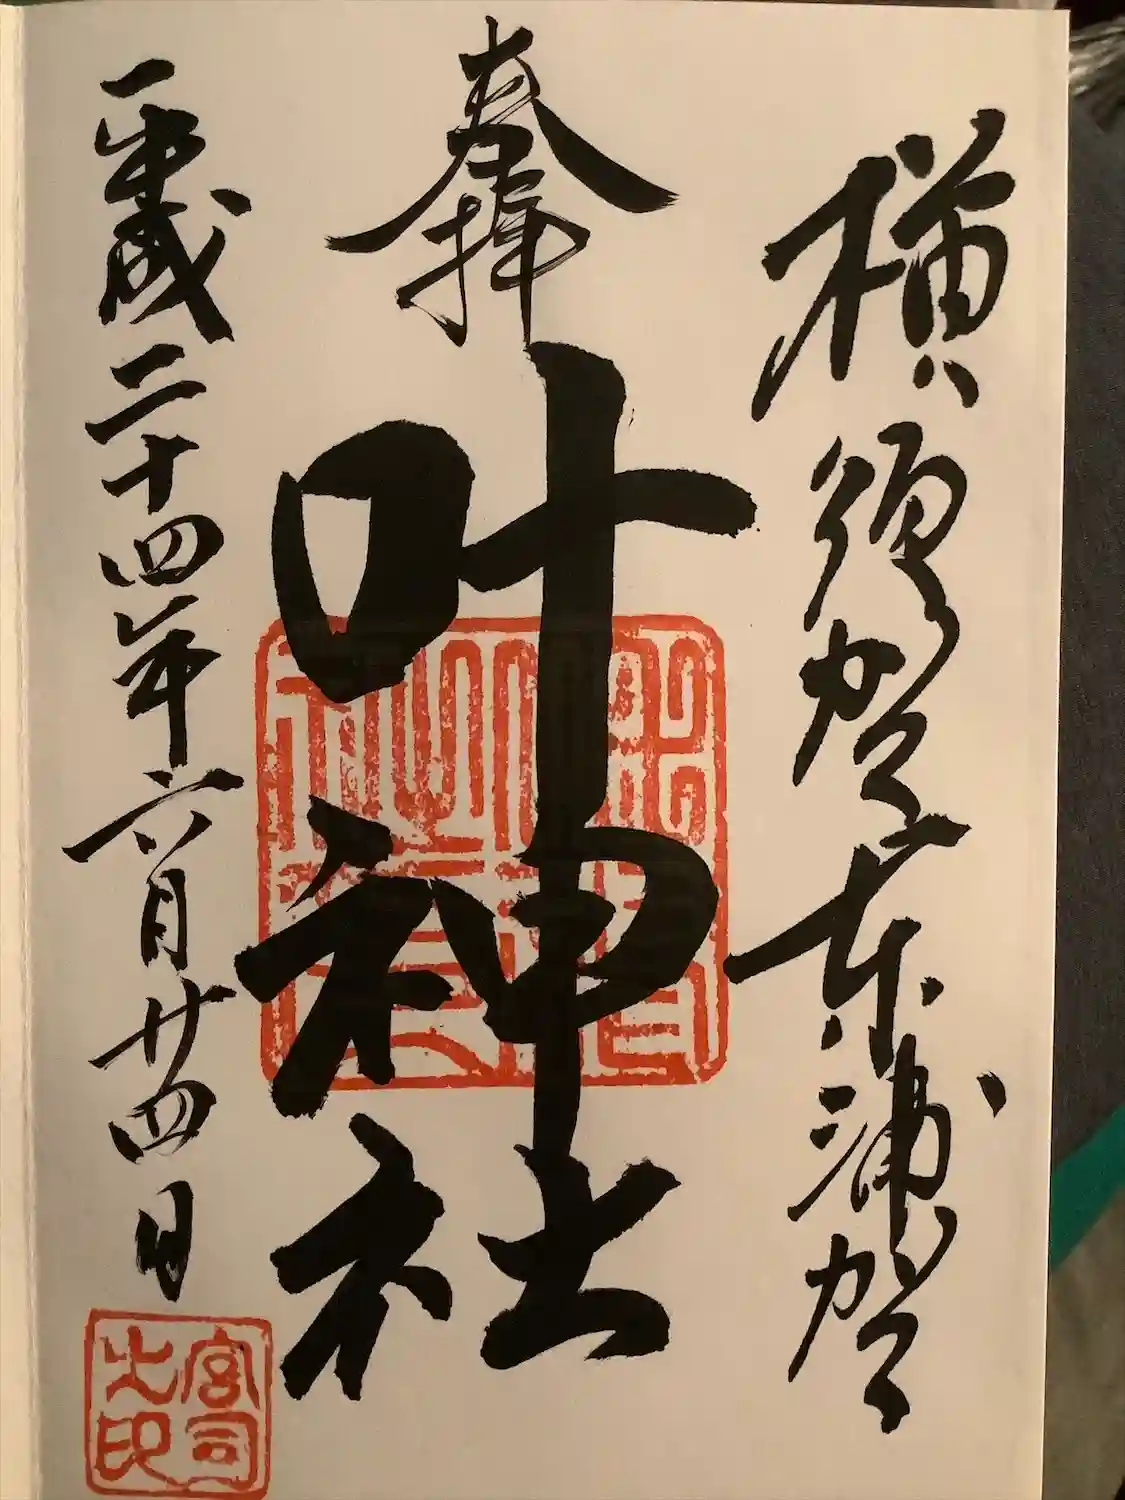 横須賀東浦賀
奉拝
叶神社
平成二十四年六月廿四日
宮司
之印